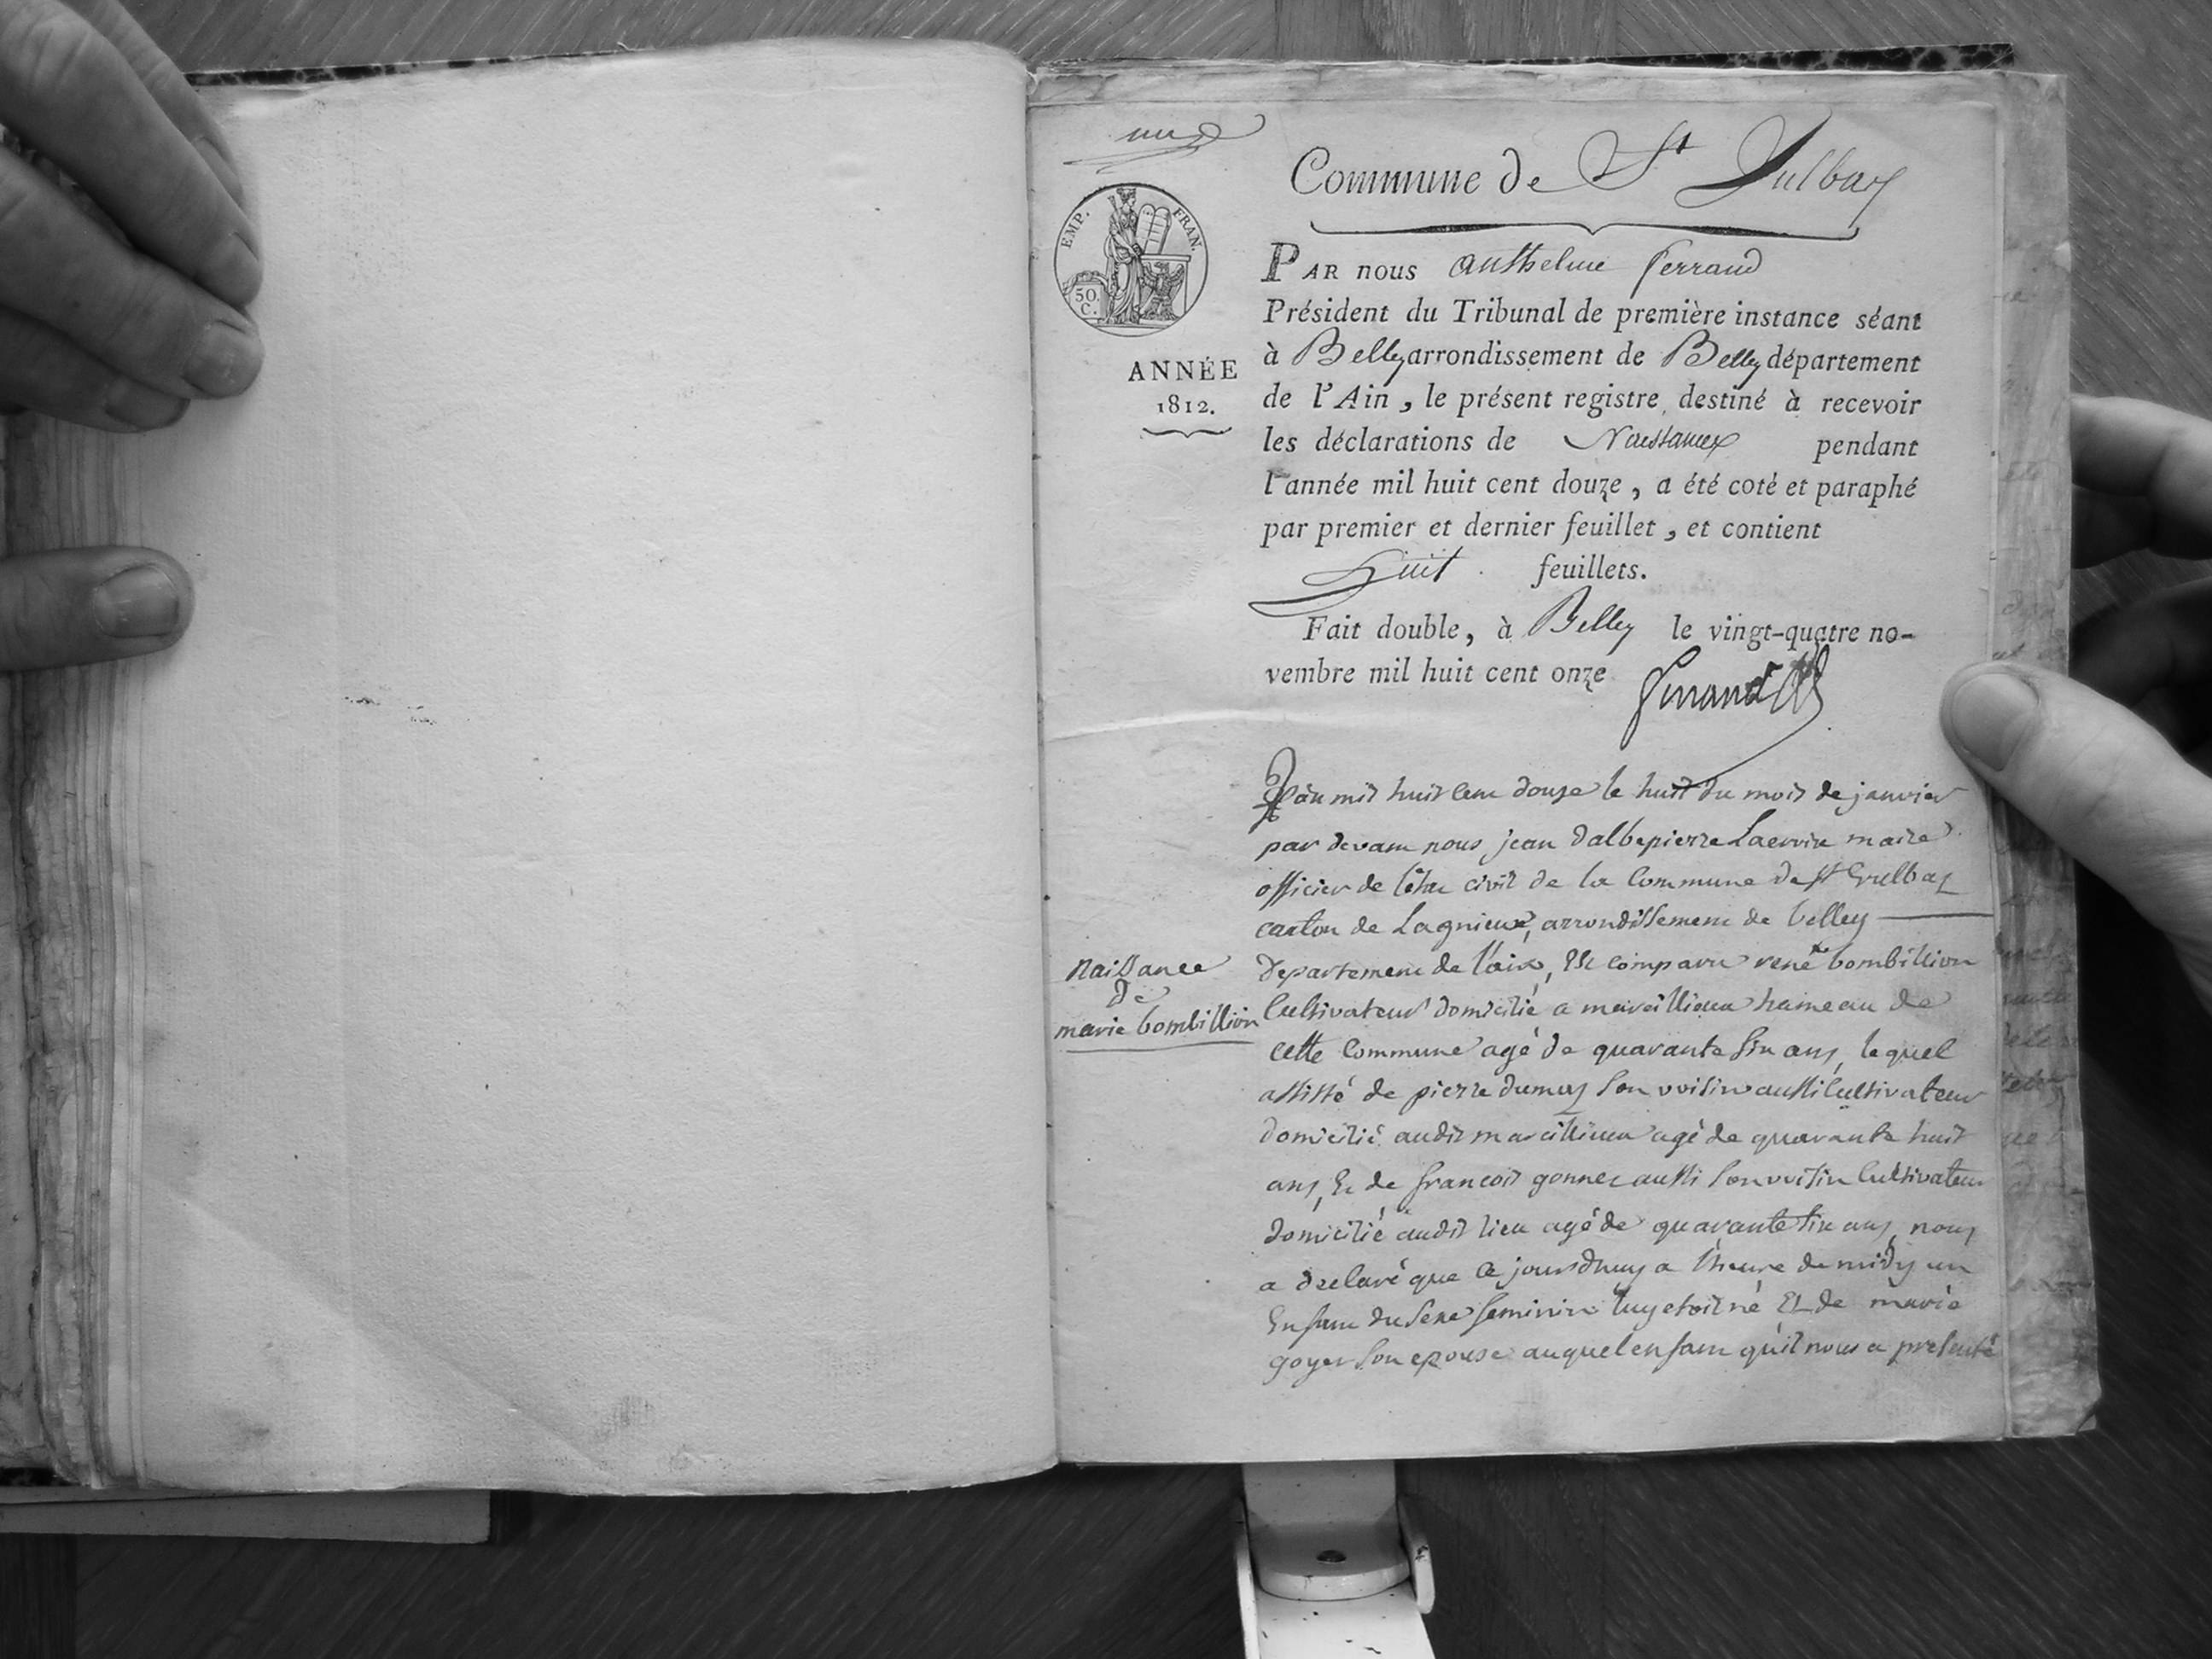 Commune de St Julbas
EMP. FRAN.
50.
C.
ANNÉE
1812.
PAR nous Anthelme ferrand
Président du Tribunal de première instance séant
à Belley arrondissement de Belley département
de l'Ain, le présent registre, destiné à recevoir
les déclarations de Naissances pendant
l'année mil huit cent douze, a été coté et paraphé
par premier et dernier feuillet, et contient
huit feuillets.
Fait double, à Belley le vingt-quatre no-
vembre mil huit cent onze
L'an mil huit cent douze le huit du mois de janvier
par devant nous jean dalbepierre Lacroix maire
officier de l'état civil de la Commune de St Gulbas
canton de Lagnieux, arrondissement de belley
Naissance
De
marie bombillion
Departement de l'ain, Est comparu rené bombillion
Cultivateur domicilié a marcillieux hameau de
cette Commune agé de quarante six ans, lequel
assisté de pierre dumas son voisin aussi Cultivateur
domicilié audit marcillieux agé de quarante huit
ans, Et de francois gonnet aussi son voisin Cultivateur
domicilié audit lieu agé de quarante six ans, nous
a declaré que ce jourdhuy a l'heure de midy un
Enfant du sexe feminin luy etoit né Et de marie
goyet son epouse auquel enfant qu'il nous a presenté